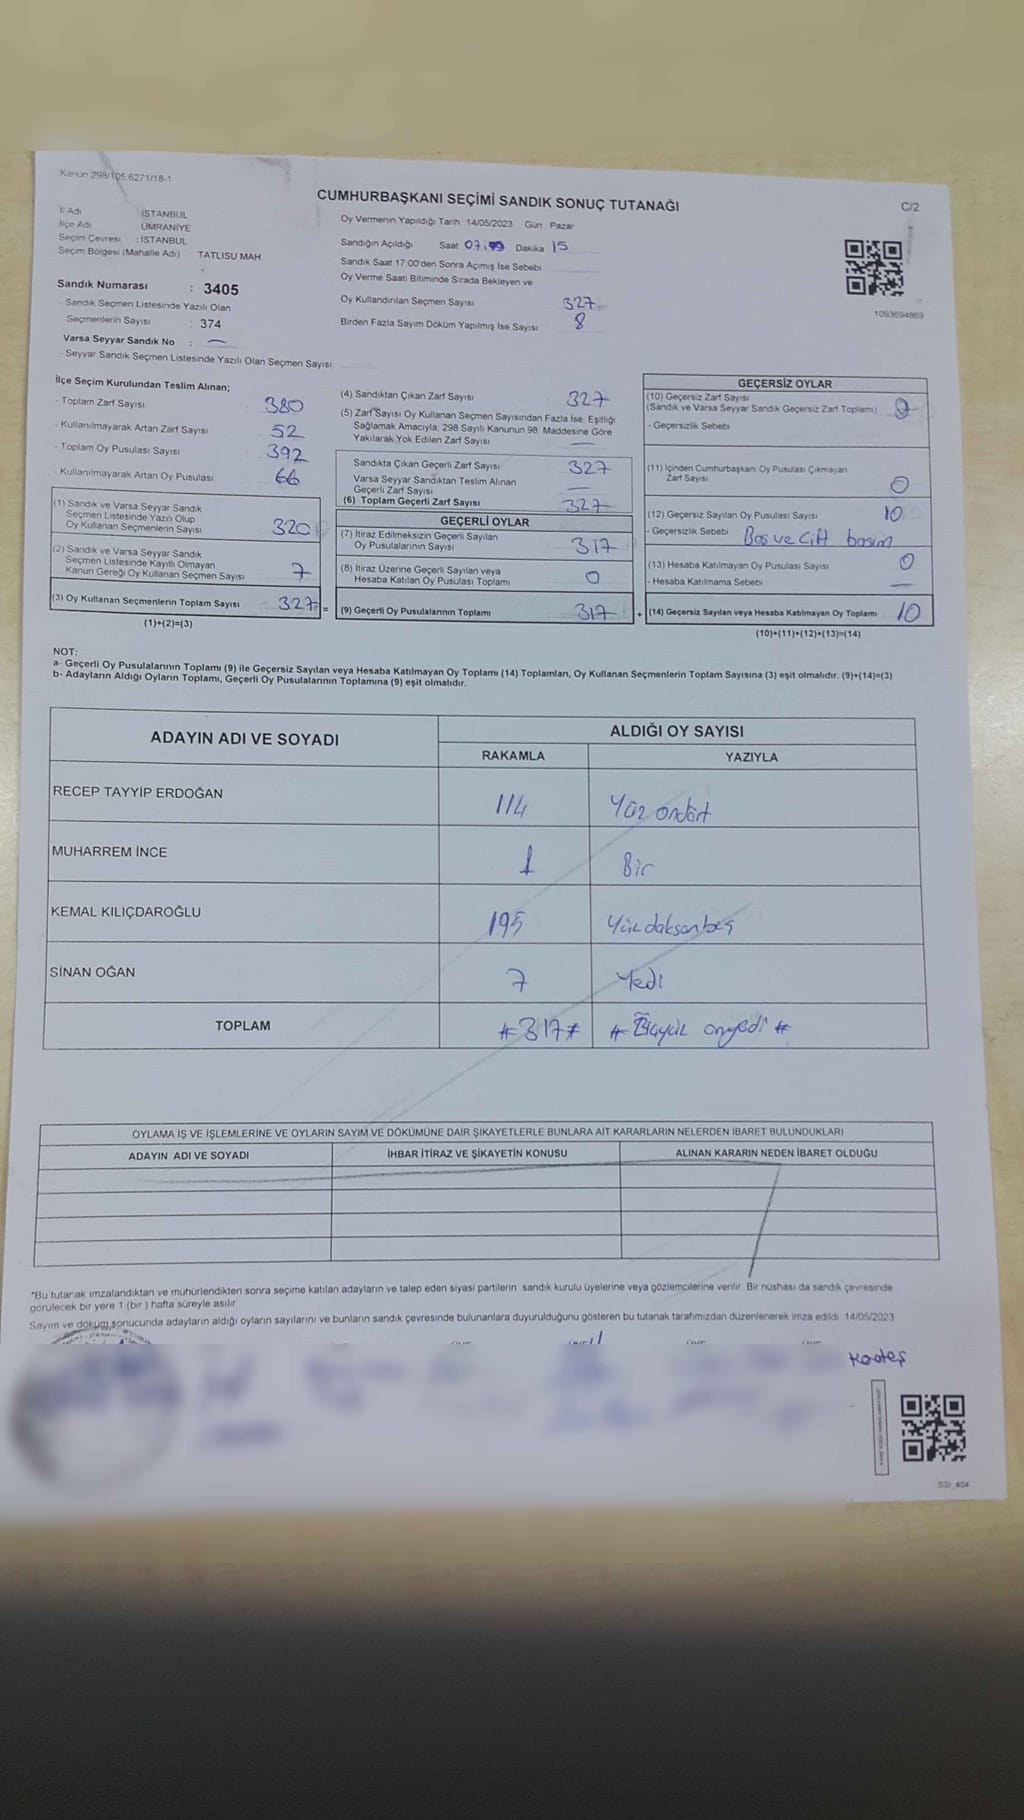 Kanun 298/105,6271/18-1
CUMHURBAŞKANI SEÇİMİ SANDIK SONUÇ TUTANAĞI
C/2
İl Adı : İSTANBUL
İlçe Adı : ÜMRANİYE
Seçim Çevresi : İSTANBUL
Seçim Bölgesi (Mahalle Adı) TATLISU MAH.
Sandık Numarası : 3405
- Sandık Seçmen Listesinde Yazılı Olan
Seçmenlerin Sayısı : 374
Varsa Seyyar Sandık No : —
- Seyyar Sandık Seçmen Listesinde Yazılı Olan Seçmen Sayısı
Oy Vermenin Yapıldığı Tarih : 14/05/2023 Gün Pazar
Sandığın Açıldığı Saat 07: Dakika 15
Sandık Saat 17:00'den Sonra Açımış İse Sebebi
Oy Verme Saati Bitiminde Sırada Bekleyen ve
Oy Kullandırılan Seçmen Sayısı 327
Birden Fazla Sayım Döküm Yapılmış İse Sayısı 8
1093694869
İlçe Seçim Kurulundan Teslim Alınan;
- Toplam Zarf Sayısı 380
- Kullanılmayarak Artan Zarf Sayısı 52
- Toplam Oy Pusulası Sayısı 392
- Kullanılmayarak Artan Oy Pusulası 66
(1) Sandık ve Varsa Seyyar Sandık
Seçmen Listesinde Yazılı Olup
Oy Kullanan Seçmenlerin Sayısı 320
(2) Sandık ve Varsa Seyyar Sandık
Seçmen Listesinde Kayıtlı Olmayan
Kanun Gereği Oy Kullanan Seçmen Sayısı 7
(3) Oy Kullanan Seçmenlerin Toplam Sayısı 327 =
(1)+(2)=(3)
(4) Sandıktan Çıkan Zarf Sayısı 327
(5) Zarf Sayısı Oy Kullanan Seçmen Sayısından Fazla İse, Eşitliği
Sağlamak Amacıyla, 298 Sayılı Kanunun 98. Maddesine Göre
Yakılarak Yok Edilen Zarf Sayısı —
Sandıkta Çıkan Geçerli Zarf Sayısı 327
Varsa Seyyar Sandıktan Teslim Alınan
Geçerli Zarf Sayısı —
(6) Toplam Geçerli Zarf Sayısı 327
GEÇERLİ OYLAR
(7) İtiraz Edilmeksizin Geçerli Sayılan
Oy Pusulalarının Sayısı 317
(8) İtiraz Üzerine Geçerli Sayılan veya
Hesaba Katılan Oy Pusulası Toplamı 0
(9) Geçerli Oy Pusulalarının Toplamı 317 +
GEÇERSİZ OYLAR
(10) Geçersiz Zarf Sayısı
(Sandık ve Varsa Seyyar Sandık Geçersiz Zarf Toplamı)
- Geçersizlik Sebebi
(11) İçinden Cumhurbaşkanı Oy Pusulası Çıkmayan
Zarf Sayısı 0
(12) Geçersiz Sayılan Oy Pusulası Sayısı 10
- Geçersizlik Sebebi Boş ve Çift basım
(13) Hesaba Katılmayan Oy Pusulası Sayısı 0
- Hesaba Katılmama Sebebi —
(14) Geçersiz Sayılan veya Hesaba Katılmayan Oy Toplamı 10
(10)+(11)+(12)+(13)=(14)
NOT:
a- Geçerli Oy Pusulalarının Toplamı (9) ile Geçersiz Sayılan veya Hesaba Katılmayan Oy Toplamı (14) Toplamları, Oy Kullanan Seçmenlerin Toplam Sayısına (3) eşit olmalıdır. (9)+(14)=(3)
b- Adayların Aldığı Oyların Toplamı, Geçerli Oy Pusulalarının Toplamına (9) eşit olmalıdır.
ADAYIN ADI VE SOYADI
ALDIĞI OY SAYISI
RAKAMLA YAZIYLA
RECEP TAYYİP ERDOĞAN 114 Yüz ondört
MUHARREM İNCE 1 Bir
KEMAL KILIÇDAROĞLU 195 Yüz doksanbeş
SİNAN OĞAN 7 Yedi
TOPLAM #317# # Üçyüz onyedi #
OYLAMA İŞ VE İŞLEMLERİNE VE OYLARIN SAYIM VE DÖKÜMÜNE DAİR ŞİKAYETLERLE BUNLARA AİT KARARLARIN NELERDEN İBARET BULUNDUKLARI
ADAYIN ADI VE SOYADI İHBAR İTİRAZ VE ŞİKAYETİN KONUSU ALINAN KARARIN NEDEN İBARET OLDUĞU
*Bu tutanak imzalandıktan ve mühürlendikten sonra seçime katılan adayların ve talep eden siyasi partilerin sandık kurulu üyelerine veya gözlemcilerine verilir. Bir nüshası da sandık çevresinde
görülecek bir yere 1 (bir ) hafta süreyle asılır.
Sayım ve döküm sonucunda adayların aldığı oyların sayılarını ve bunların sandık çevresinde bulunanlara duyurulduğunu gösteren bu tutanak tarafımızdan düzenlenerek imza edildi. 14/05/2023
SSI_404